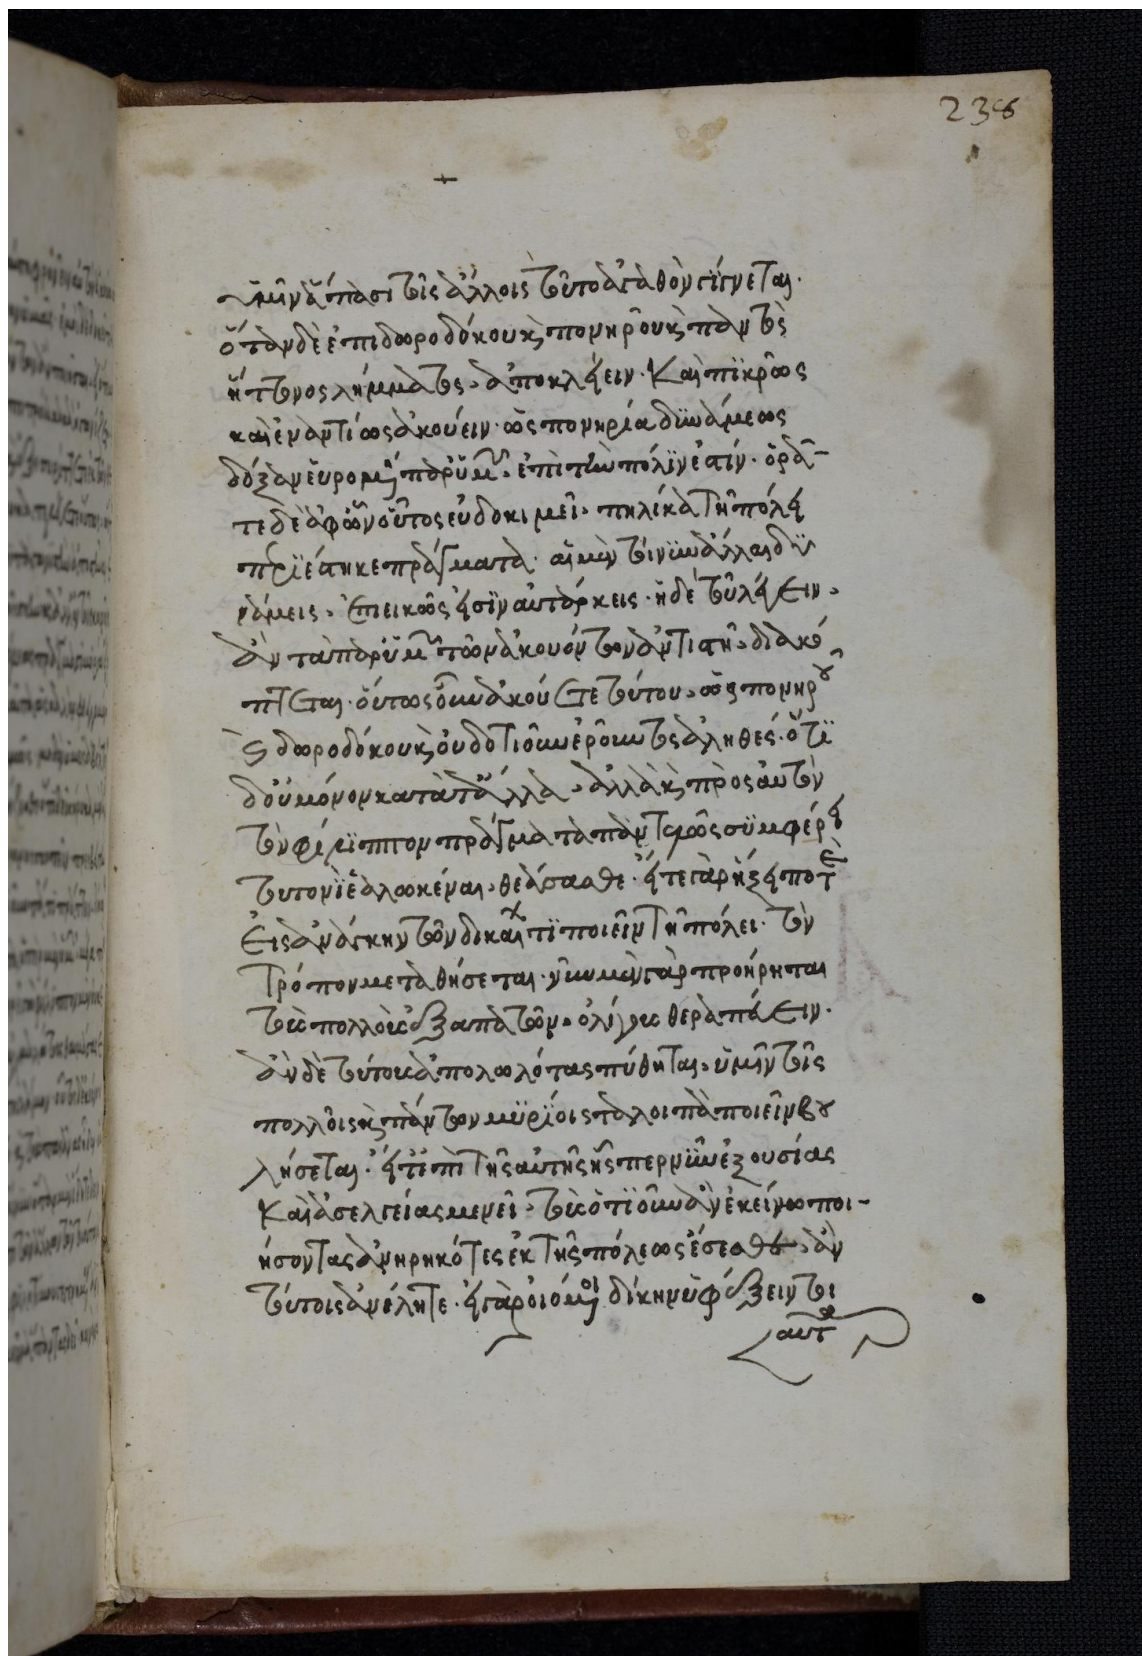 ὑμῖν ἅπασι τοῖς ἄλλοις τοῦτο ἀγαθὸν γίγνεται·
ὅταν δὲ ἐπὶ δωροδόκου καὶ πονηροῦ καὶ παντὸς
ἥττονος λήμματος, ἀποκλείειν· καὶ πϊκρῶς
καὶ ἐναντίως ἀκούειν· ὡς πονηρία δϋνάμεως
δόξαν εὑρομένη παρ' ὑμῶν, ἐπὶ τὴν πόλϊν ἐστίν· ὁρᾶ-
τε δὲ ἀφ' ὧν οὗτος εὐδοκιμεῖ, πηλίκα τῇ πόλει
περϊέστηκε πράγματα· αἱ μὲν τοίνϋν ἄλλαι δϋ
νάμεις, ἐπιεικῶς εἰσϊν αὐτάρκεις· ἡ δὲ τοῦ λέγειν,
ἂν τὰ παρ' ὑμῶν τῶν ἀκουόντων ἀντιστῇ, διακό
πτεται· οὕτως οὖν ἀκούετε τούτου, ὡς πονηροῦ
καὶ δωροδόκου καὶ οὐδοτιοῦν ἐροῦντος ἀληθές· ὅτϊ
δ' οὐ μόνον κατὰ τἄλλα, ἀλλὰ καὶ πρὸς αὐτὸν
τὸν φίλιππον πράγματα πανταχῶς σϋμφέρει
τουτονῒ ἑαλωκέναι, θεάσασθε· εἴτε γὰρ ἥξει ποτὲ
εἰς ἀνάγκην τῶν δικαίων τϊ ποιεῖν τῇ πόλει· τὸν
τρόπον μεταθήσεται· νῦν μὲν γὰρ προῄρηται
τοὺς πολλοὺς ἐξαπατῶν, ὀλίγους θεραπεύειν·
ἂν δὲ τούτους ἀπολωλότας πύθηται, ὑμῖν τοῖς
πολλοῖς καὶ πάντων κϋρϊοις τὰ λοιπὰ ποιεῖν βου
λήσεται· εἴτ' ἐπὶ τῆς αὐτῆς ἧσπερ νῦν ἐξουσίας
καὶ ἀσελγείας μενεῖ, τοὺς ὁτϊοῦν ἂν ἐκείνῳ ποι-
ήσοντας ἀνῃρηκότες ἐκ τῆς πόλεως ἔσεσθε, ἂν
τούτοις ἀνέλητε· εἰ γὰρ οἰόμενοι δίκην ὑφέξειν τοι
αυτ
238